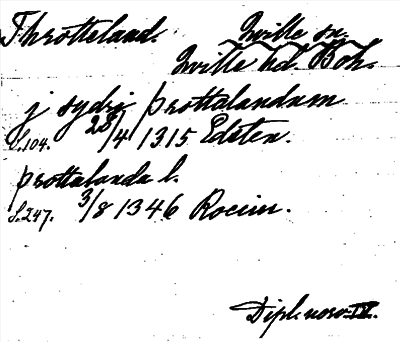 Throtteland. Qville sn.
Qville hd. Boh.
j sydri þrottalandum
S.104. 28/4 1315 Edsten.
þrottalanda l.
S.247. 3/8 1346
Dipl. norv. IV.